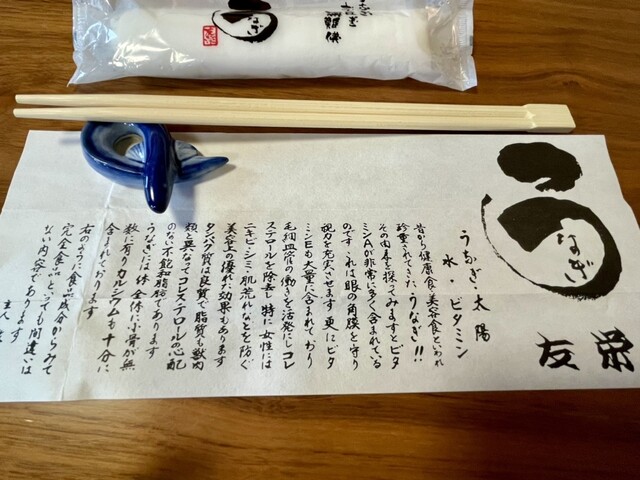 うなぎ
うなぎ
友栄
うなぎ・太陽
水・ビタミン
昔から健康食・美容食といわれ
珍重されてきたうなぎ!!
その内容を探ってみますとビタ
ミンAが非常に多く含まれている
のです これは眼の角膜を守り
視力を充実させます 更にビタ
ミンEも大量に含まれており
毛細血管の働きを活発にしコレ
ステロールを除去し 特に女性には
ニキビ・シミ・肌荒れなどを防ぐ
美容上の優れた効果もあります
タンパク質は良質で脂質も獣肉
類と異なってコレステロールの心配
のない不飽和脂肪であります
うなぎには体全体に小骨が無
数に有りカルシウムも十分に
含まれております
右のように食品成分からみて
完全食品といっても間違いは
ない内容であります
主人